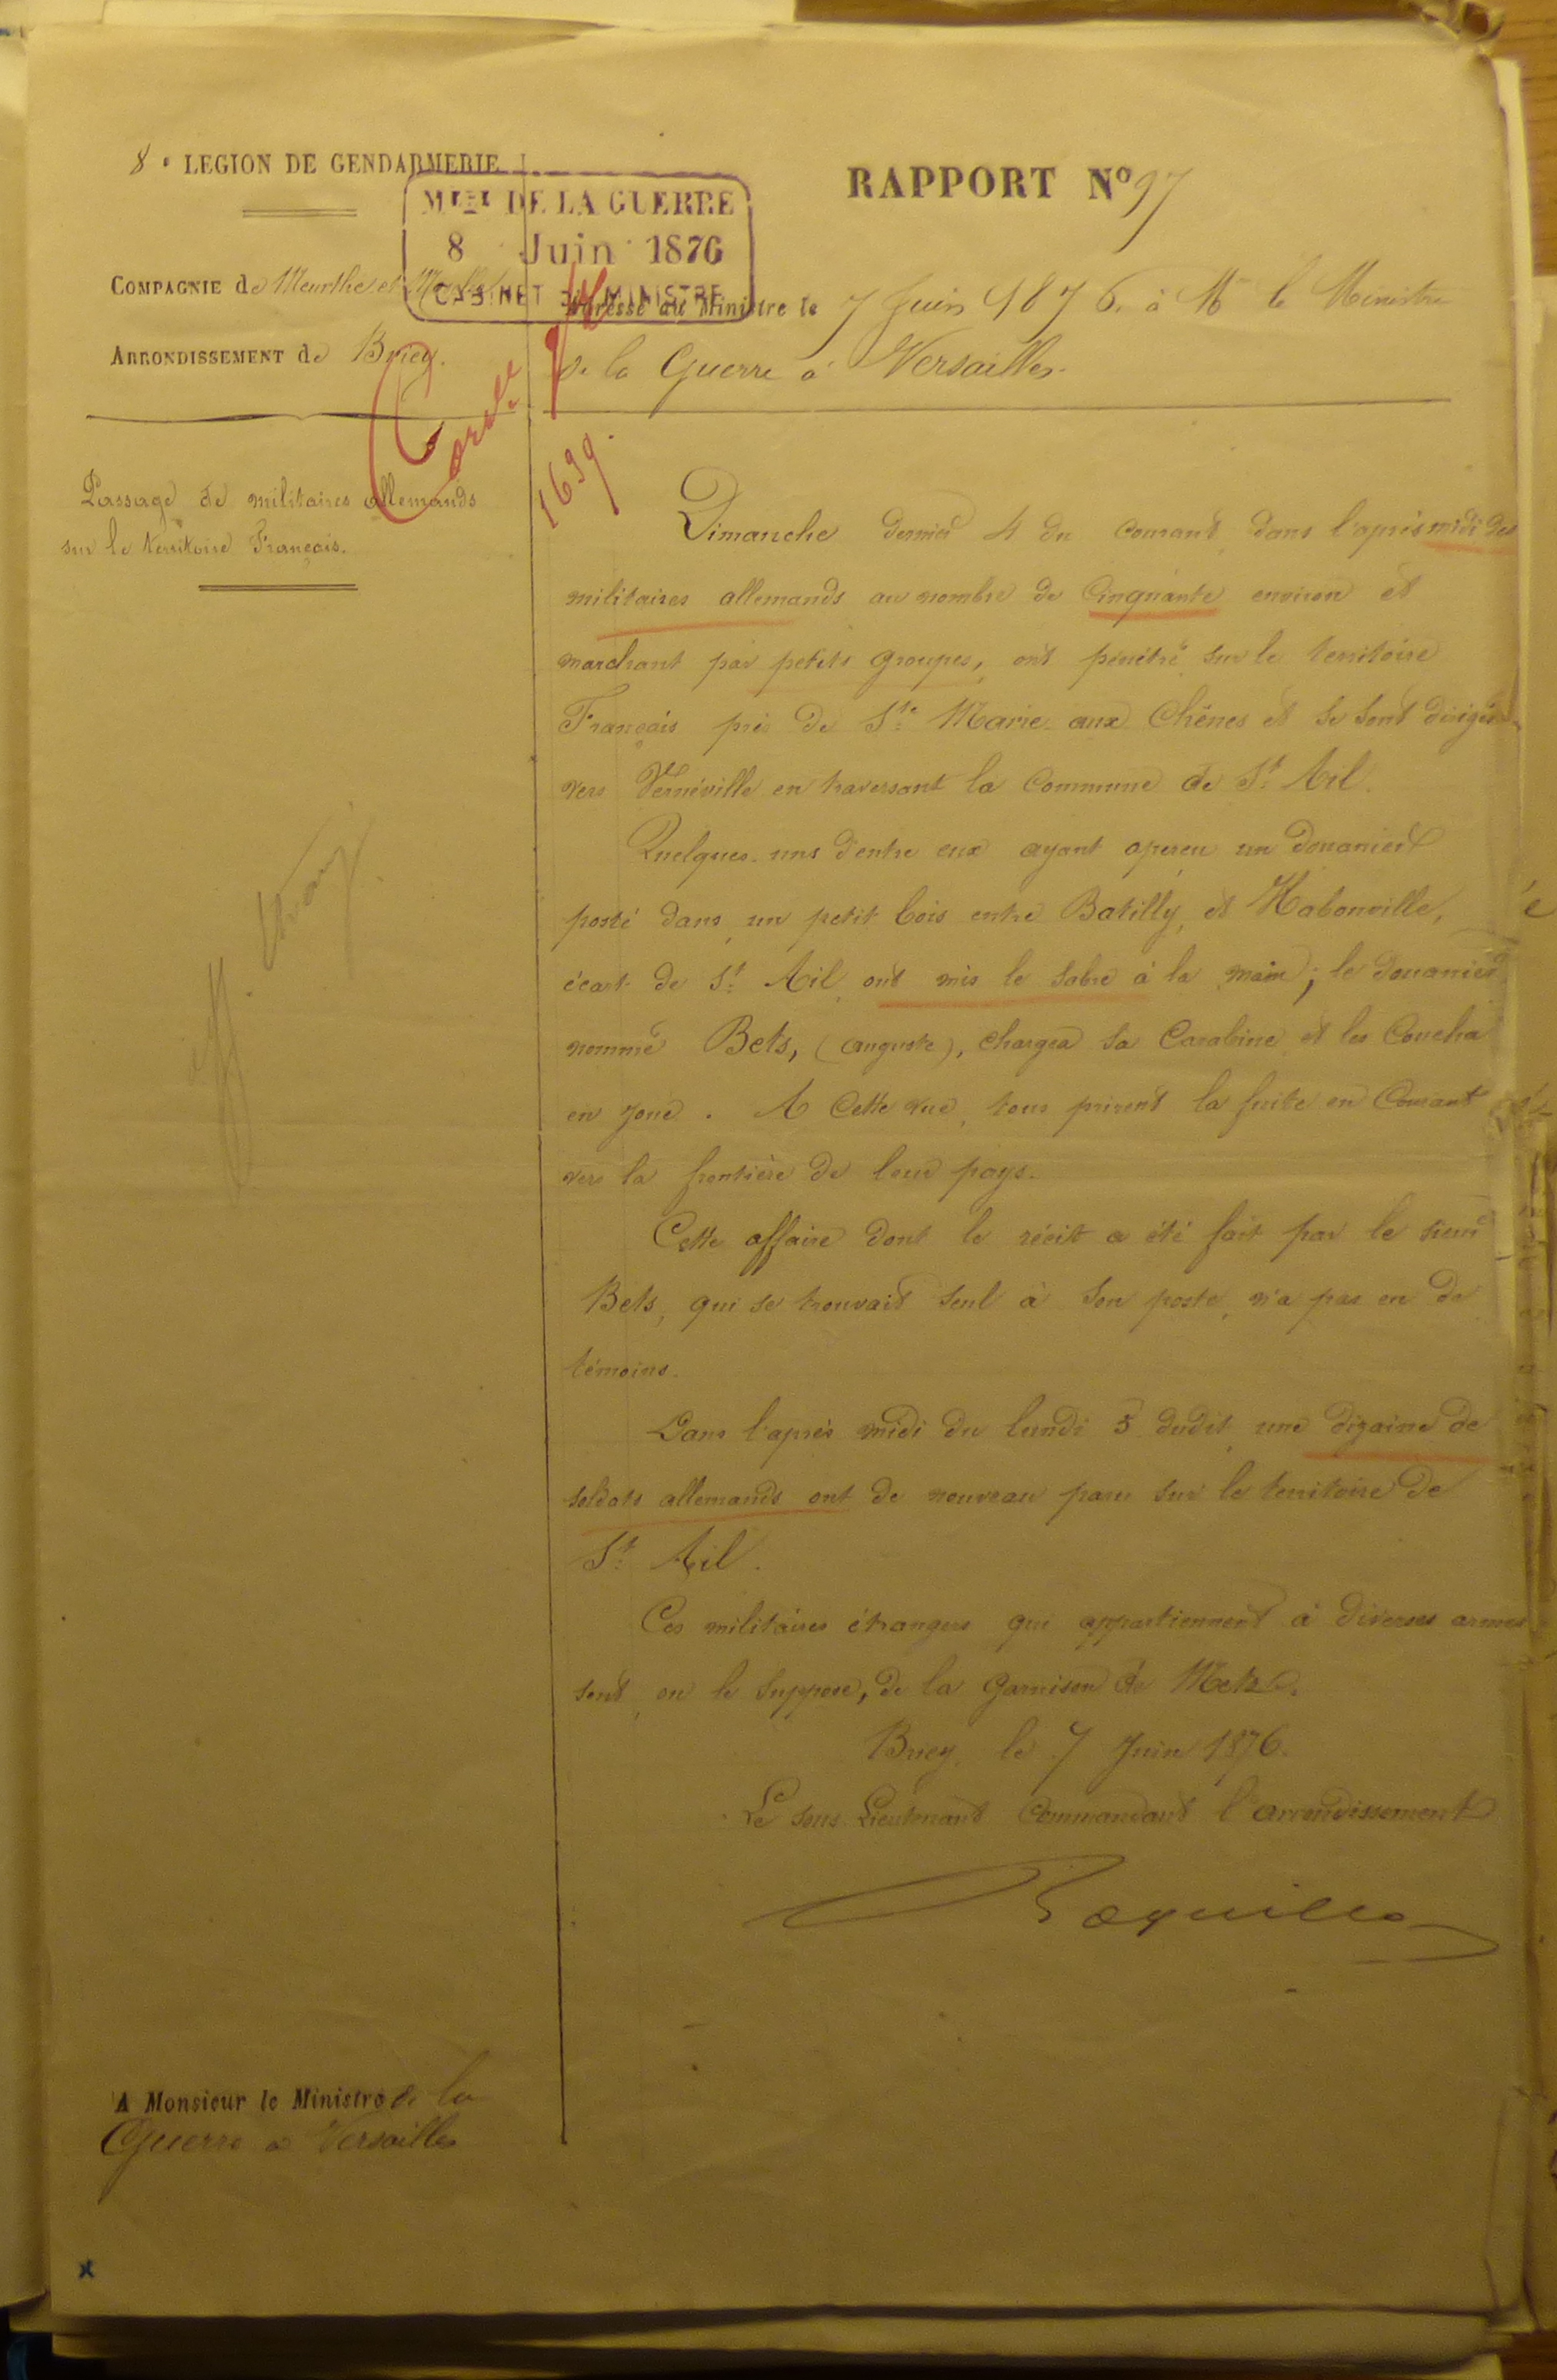 8e LEGION DE GENDARMERIE
MTERE DE LA GUERRE
8 Juin 1876
CABINET DU MINISTRE
RAPPORT No 97
COMPAGNIE de Meurthe et Moselle
ARRONDISSEMENT de Briey.
Adressé au Ministre le 7 Juin 1876. à Mr le Ministre
de la Guerre à Versailles.
1639.
Passage de militaires allemands
sur le territoire Français.
Dimanche dernier 4 du courant, dans l'après midi des
militaires allemands au nombre de Cinquante environ et
marchant par petits groupes, ont pénétré sur le territoire
Français près de Ste Marie-aux-Chênes et se sont dirigés
vers Vernéville en traversant la Commune de St. Ail.
Quelques-uns d'entre eux ayant aperçu un douanier
posté dans un petit bois entre Batilly, et Habonville,
écart de St. Ail, ont mis le sabre à la main; le douanier
nommé Bets, (auguste), chargea sa Carabine et les Coucha
en joue. A Cette vue, tous prirent la fuite en Courant
vers la frontière de leur pays.
Cette affaire dont le récit a été fait par le sieur
Bets, qui se trouvait seul à son poste, n'a pas eu de
témoins.
Dans l'après midi du lundi 5 dudit, une dizaine de
soldats allemands ont de nouveau paru sur le territoire de
St. Ail.
Ces militaires étrangers qui appartiennent à diverses armes
sont, on le suppose, de la garnison de Metz.
Briey, le 7 Juin 1876.
Le sous Lieutenant Commandant l'arrondissement
A Monsieur le Ministre de la
Guerre à Versailles
x